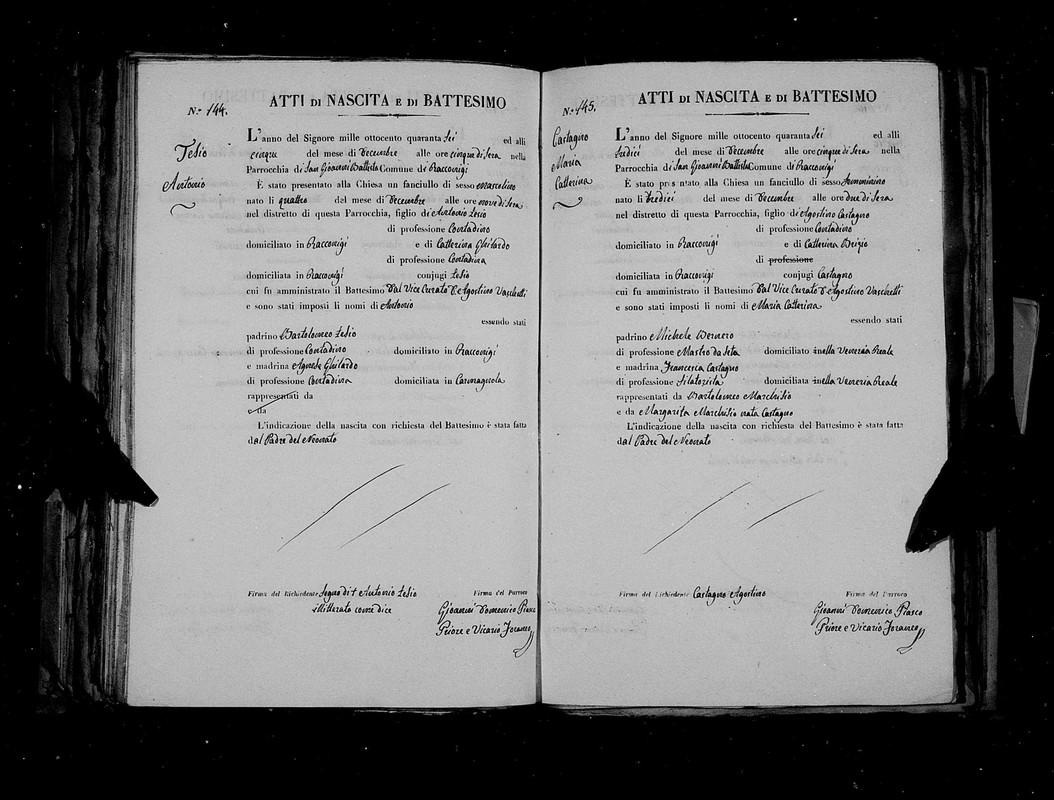 N.º 144.
ATTI DI NASCITA E DI BATTESIMO
Tesio
Antonio
L'anno del Signore mille ottocento quaranta sei ed alli
cinque del mese di Decembre alle ore cinque di sera nella
Parrocchia di San Giovanni Battista Comune di Racconigi
È stato presentato alla Chiesa un fanciullo di sesso mascolino
nato li quattro del mese di Decembre alle ore nove di sera
nel distretto di questa Parrocchia, figlio di Antonio Tesio
di professione Contadino
domiciliato in Racconigi e di Catterina Ghilardo
di professione Contadina
domiciliata in Racconigi conjugi Tesio
cui fu amministrato il Battesimo Dal Vice Curato D. Agostino Vaschetti
e sono stati imposti li nomi di Antonio
essendo stati
padrino Bartolomeo Tesio
di professione Contadino domiciliato in Racconigi
e madrina Agnese Ghilardo
di professione Contadina domiciliata in Carmagnola
rappresentati da
e da
L'indicazione della nascita con richiesta del Battesimo è stata fatta
dal Padre del Neonato
Firma del Richiedente Segno di † Antonio Tesio
illitterato come dice
Firma del Parroco
Gioanni Domenico Piasco
Priore e Vicario Foraneo
N.º 145.
ATTI DI NASCITA E DI BATTESIMO
Castagno
Maria
Catterina
L'anno del Signore mille ottocento quaranta sei ed alli
tredici del mese di Decembre alle ore cinque di sera nella
Parrocchia di San Gioanni Battista Comune di Racconigi
È stato presentato alla Chiesa un fanciullo di sesso femminino
nato li tredici del mese di Decembre alle ore due di sera
nel distretto di questa Parrocchia, figlio di Agostino Castagno
di professione Contadino
domiciliato in Racconigi e di Catterina Brizio
di professione
domiciliata in Racconigi conjugi Castagno
cui fu amministrato il Battesimo Dal Vice Curato D. Agostino Vaschetti
e sono stati imposti li nomi di Maria Catterina
essendo stati
padrino Michele Bernero
di professione Mastro da Seta domiciliato inella Veneria Reale
e madrina Francesca Castagno
di professione Filatorista domiciliata inella Veneria Reale
rappresentati da Bartolomeo Marchisio
e da Margarita Marchisio nata Castagno
L'indicazione della nascita con richiesta del Battesimo è stata fatta
dal Padre del Neonato
Firma del Richiedente Castagno Agostino
Firma del Parroco
Gioanni Domenico Piasco
Priore e Vicario Foraneo